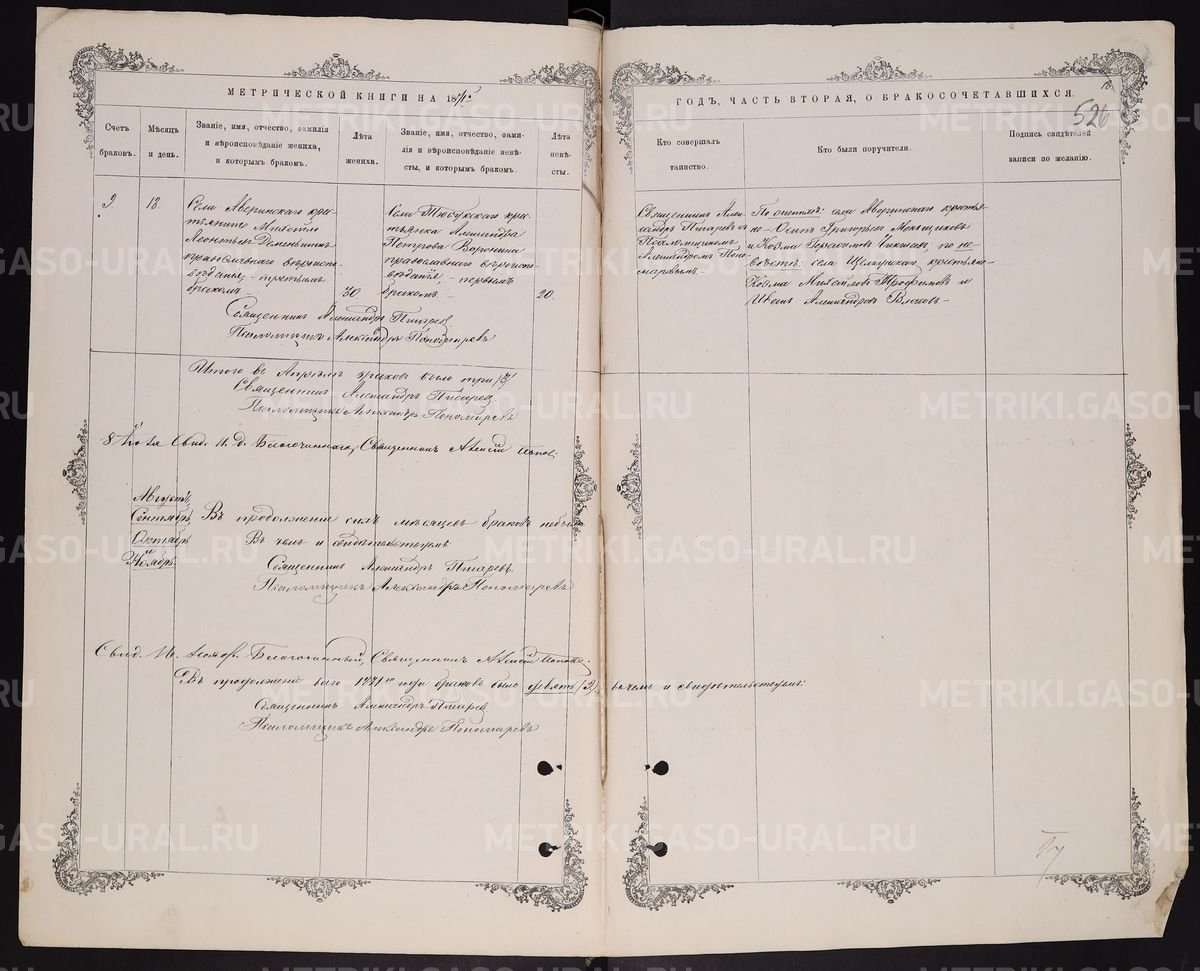 МЕТРИЧЕСКОЙ КНИГИ НА 1871
ГОДЪ, ЧАСТЬ ВТОРАЯ, О БРАКОСОЧЕТАВШИХСЯ.
526
Счетъ браковъ.
Мѣсяцъ и день.
Званіе, имя, отчество, фамилія
и вѣроисповѣданіе жениха,
и которымъ бракомъ.
Лѣта
жениха.
Званіе, имя, отчество, фами-
лія и вѣроисповѣданіе невѣ-
сты, и которымъ бракомъ.
Лѣта
невѣ-
сты.
Кто совершалъ
таинство.
Кто были поручители.
Подпись свидѣтелей
записи по желанію.
9
18.
Села Аверинскаго кре-
стьянинъ Михаило
Леонтьевъ Дементьинъ
православнаго вѣроиспо-
вѣданія, третьимъ
бракомъ
30
Села Тюбукскаго кре-
стьянка Александра
Петрова Воронина
православнаго вѣроиспо-
вѣданія, первымъ
бракомъ.
20.
Священникъ Алек-
сандръ Пигаревъ съ
Псаломщикомъ
Александромъ Поно-
маревымъ.
По женихѣ: села Аверинскаго крестья-
не Осипъ Григорьевъ
и Козма Герасимовъ по не-
вѣстѣ: села крестьяне
Козма Михайловъ Трофимовъ и
Иванъ Александровъ Власовъ
Священникъ Александръ Пигаревъ
Псаломщикъ Александръ Пономаревъ
Итого въ Апрѣлѣ браковъ было три /3/
Священникъ Александръ Пигаревъ
Псаломщикъ Александръ Пономаревъ
8 Свид. И. д. Благочиннаго, Священникъ Алексій Поповъ
Августъ,
Сентябрь,
Октябрь
и
Ноябрь.
Въ продолженіи сихъ мѣсяцевъ браковъ небыло
Въ чемъ и свидѣтельствуемъ
Священникъ Александръ Пигаревъ.
Псаломщикъ Александръ Пономаревъ
Свид. Благочинный, Священникъ Алексій Поповъ.
Въ продолженіе сего 1871го года браковъ было девять /9/, въ чемъ и свидѣтельствуемъ:
Священникъ Александръ Пигаревъ
Псаломщикъ Александръ Пономаревъ
METRIKI.GASO-URAL.RU